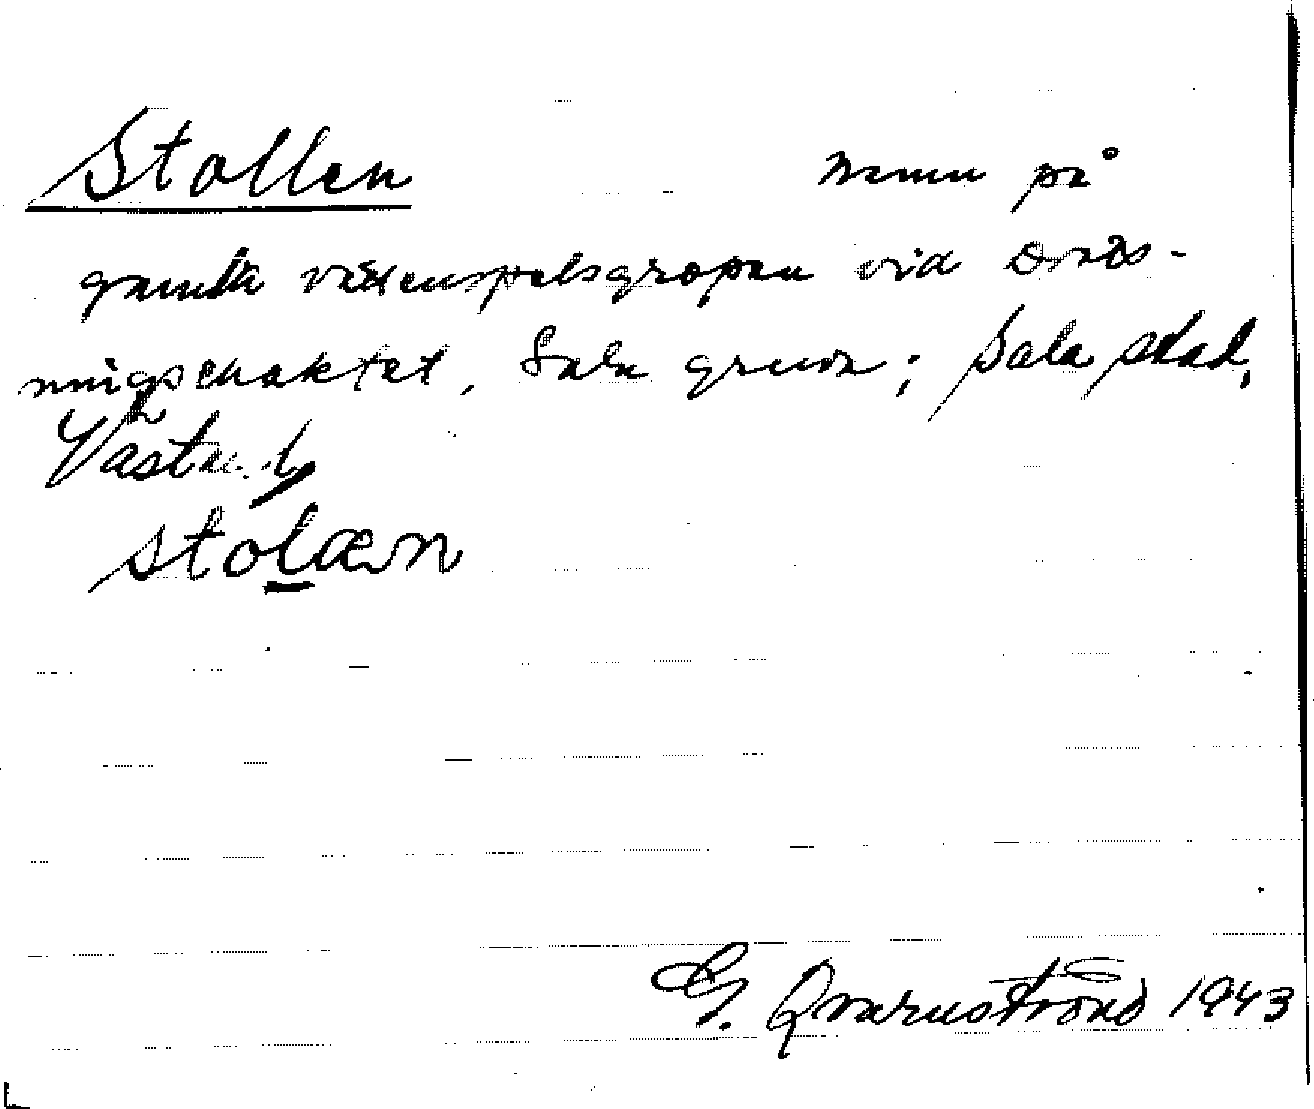 Stollen namn på
gamla vattenspelsgropen vid Drott-
ningschaktet, Sala gruva; Sala stad,
Västm.
G. Qvarnström 1943